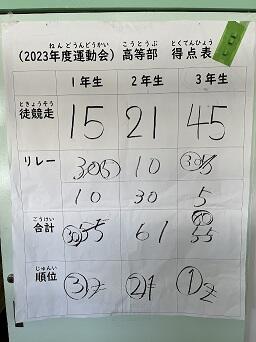 (2023年度運動会) 高等部 得点表
ねんどうんどうかい こうとうぶ とくてんひょう
1年生 2年生 3年生
ときょうそう
徒競走 15 21 45
リレー 10
10 30 5
ごうけい
合計 61
じゅんい
順位 ③ ①